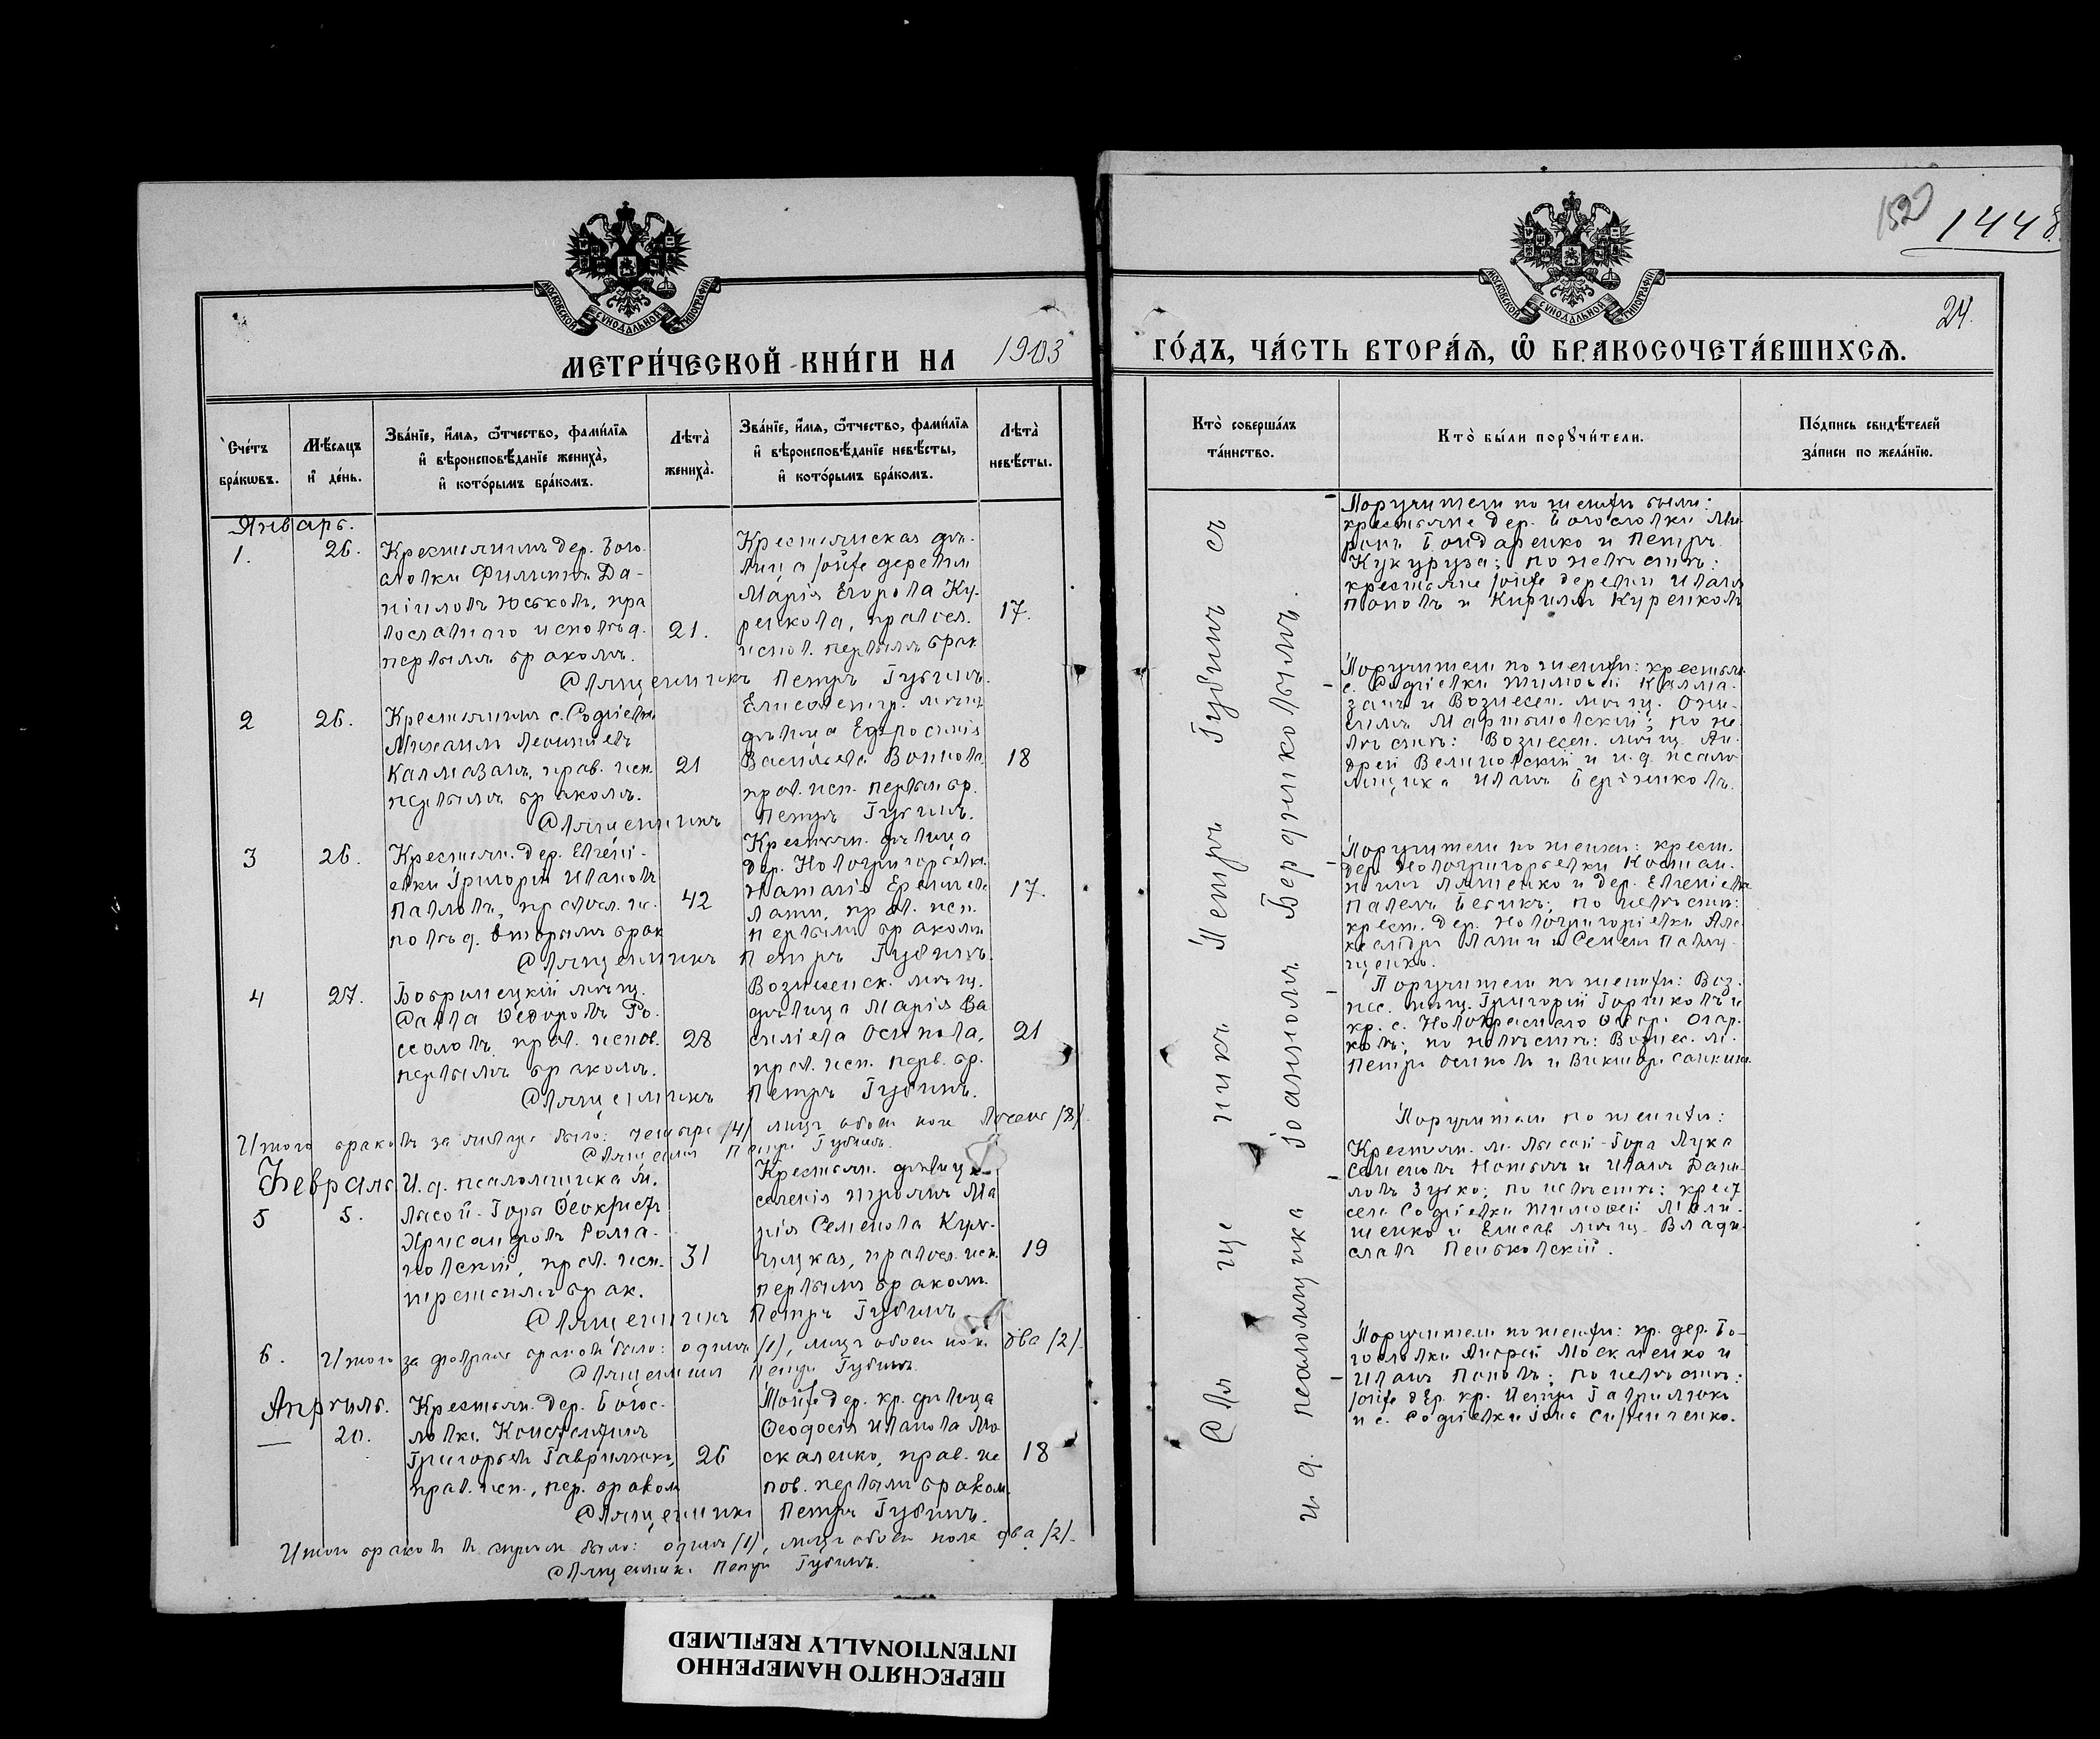 МОСКОВСКОЙ СУНОДАЛЬНОЙ ТИПОГРАФІИ
МЕТРИ́ЧЕСКОЙ КНИ́ГИ НА 1903
Сче́тъ бра́кѡвъ.
Мѣ́сяцъ и҆ де́нь.
Зва́нїе, и҆́мя, ѻ҆́тчество, фами́лїя
и҆ вѣроисповѣ́данїе жениха̀,
и҆ кото́рымъ бра́комъ.
Лѣта̀ жениха̀.
Зва́нїе, и҆́мя, ѻ҆́тчество, фами́лїя
и҆ вѣроисповѣ́данїе невѣ́сты,
и҆ кото́рымъ бра́комъ.
Лѣта̀ невѣ́сты.
Январь.
1.
26.
Крестьянинъ дер. Бого-
словки Филиппъ Да-
ніиловъ Юсковъ, пра
вославнаго исповѣд.
первымъ бракомъ.
21.
Крестьянская дѣ-
вица тойже деревни
Марія Егорова Ку-
ренкова, правосл.
испов. первымъ брак.
17.
Священникъ Петръ Губинъ.
2
26.
Крестьянинъ с. Софіевки
Михаилъ Леонтіевъ
Калмазанъ, прав. исп.
первымъ бракомъ.
21
Елисаветгр. мѣщ.
дѣвица Ефросинія
Васильева Воинова,
прав. исп. первым бр.
18
Священникъ Петръ Губинъ.
3
26.
Крестьян. дер. Евгеніе-
вки Григорій Ивановъ
Павловъ, правосл. ис-
повѣд. вторымъ брак
42
Крестьян. дѣвица
дер. Новогригорьевки
Наталія
прав. исп.
первымъ браком
17.
Священникъ Петръ Губинъ.
4
27.
Бобринецкій мѣщ.
Савва Ѳедоровъ
прав. испов.
первымъ бракомъ.
28
Вознесенск. мѣщ.
дѣвица Марія Ва
силіева Осипова,
прав. исп. перв. бр.
21
Священникъ Петръ Губинъ.
Итого браковъ за январь было: четыре (4) лицъ обоего пола восемь (8).
Священникъ Петръ Губинъ.
Февраль
5
5.
И. д. псаломщика м.
Лысой-Горы Ѳеоктистъ
Хрисанфовъ Рома-
новскій, прав. исп.
третьимъ брак.
31
Крестьян. дѣвица
селенія Трояны Ма
рія Семенова
правосл. исп.
первымъ браком.
19
Священникъ Петръ Губинъ
6.
Итого за февраль браковъ было: одинъ (1), лицъ обоего пола два (2).
Священникъ Петръ Губинъ.
Апрѣль.
20.
Крестьян. дер. Богос-
ловки Константинъ
Григорьевъ Гаврилюкъ,
прав. исп., пер. браком
26
Тойже дер. кр. дѣвица
Ѳеодосія Иванова Мо
скаленко, прав. ис
пов. первымъ браком.
18
Священникъ Петръ Губинъ.
Итого браковъ въ апрѣлѣ было: одинъ (1), лицъ обоего пола два (2).
Священникъ Петръ Губинъ.
152
1448
24.
МОСКОВСКОЙ СУНОДАЛЬНОЙ ТИПОГРАФІИ
ГО́ДЪ, ЧА́СТЬ ВТОРА́Я, Ѽ БРАКОСОЧЕТА́ВШИХСЯ.
Кто̀ соверша́лъ
та́инство.
Кто̀ бы́ли порꙋчи́тели.
По́дпись свидѣ́телей
за́писи по жела́нїю.
Священникъ Петръ Губинъ съ
и. д. псаломщика Іоанномъ Бердниковымъ.
Поручители по женихѣ были:
крестьяне дер. Богословки Ми-
ронъ Бондаренко и Петръ
Кукуруза; по невѣстѣ:
крестьяне тойже деревни Иванъ
Поповъ и Кириллъ Куренковъ
Поручители по женихѣ: крестьян.
с. Софіевки Тимофей Калма-
занъ и Вознесен. мѣщ. Они-
симъ Мартыновскій; по не-
вѣстѣ: Вознесен. мѣщ. Ан-
дрей и и. д. псало-
мщика Иванъ Бердниковъ.
Поручители по жених: крест.
дер. Новогригорьевки Костан-
тинъ и дер. Евгеніевки
Павелъ по невѣстѣ:
крест. дер. Новогригоріевки Але-
ксандръ и Семенъ
Поручители по женихѣ: Воз-
нес. мѣщ. Григорій Горшковъ и
кр. с. Новокрасного
по невѣстѣ: Вознес. м.
Петръ Осиповъ и Викторъ Санкинъ
Поручители по женихѣ:
Крестьян. м. Лысой-Гора Лука
Семеновъ и Иванъ Дани-
ловъ Зубко; по невѣстѣ: крест
села Софіевки Тимофей
и Елисав. мѣщ. Влади-
славъ Пеньковскій.
Поручители по женихѣ: кр. дер. Бо-
гословки Андрей Москаленко и
Иванъ Поповъ; по невѣстѣ:
тойже дер. кр. Петръ Гаврилюкъ
и с. Софіевки
ПЕРЕСНЯТО НАМЕРЕННО
INTENTIONALLY REFILMED